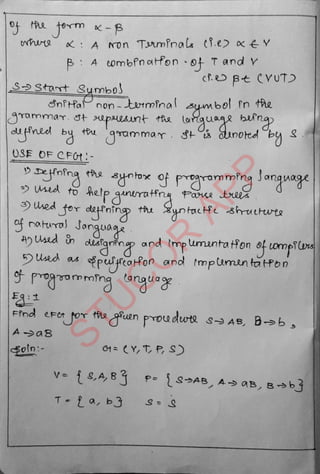 of the form α - β
where α : A Non Terminals (i.e) α ∈ V
β : A combination of T and V
(i.e) β ∈ (VUT)
S→Start Symbol
Initial non-terminal symbol in the
grammar. It represent the language being
defined by the grammar. It is denoted by S.
USE OF CFG:-
1) Defining the syntax of programming language
2) Used to help generating Parse trees
3) Used for defining the syntactic structure
of natural language.
4) Used in designing and implementation of compilers
5) Used as specification and implementation
of programming language.
Eg: 1
Find CFG for the given procedure S→AB, B→b,
A→aB
Soln:-
G = (V, T, P, S)
V = { S, A, B } P = { S→AB, A→aB, B→b }
T = { a, b } S = S
STUCOR APP